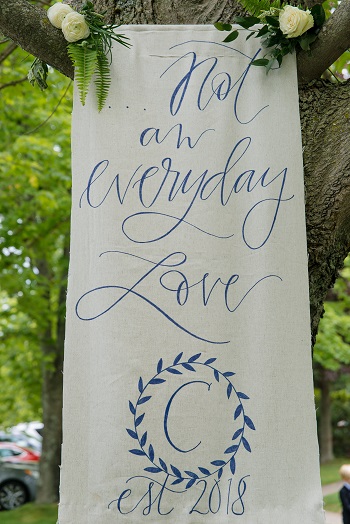 .... Not
an
everyday
Love
C
est 2018